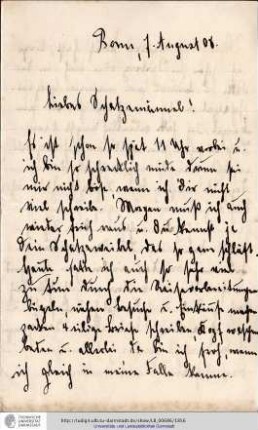 Bonn, 7. August 08.
liebes Schatzemännel!
Es ist schon so spät 11 Uhr vorbei u.
ich bin so schrecklich müde drum sei
mir nicht böse wenn ich Dir nicht
viel schreibe. Morgen muß ich auch
wieder früh raus u. Du kennst ja
Dein Schatzeweibel das so gern schläft.
Heute hatte ich auch so sehr viel
zu tun durch die Reisevorbereitungen
bügeln, nähen, Besuche u. Einkäufe machen
packen eilige Briefe schreiben, Kopf waschen
baden u. allerlei da bin ich froh, wenn
ich gleich in meine Falle komme.
http://tudigit.ulb.tu-darmstadt.de/show/
Universitäts- und Landesbibliothek Darmstadt